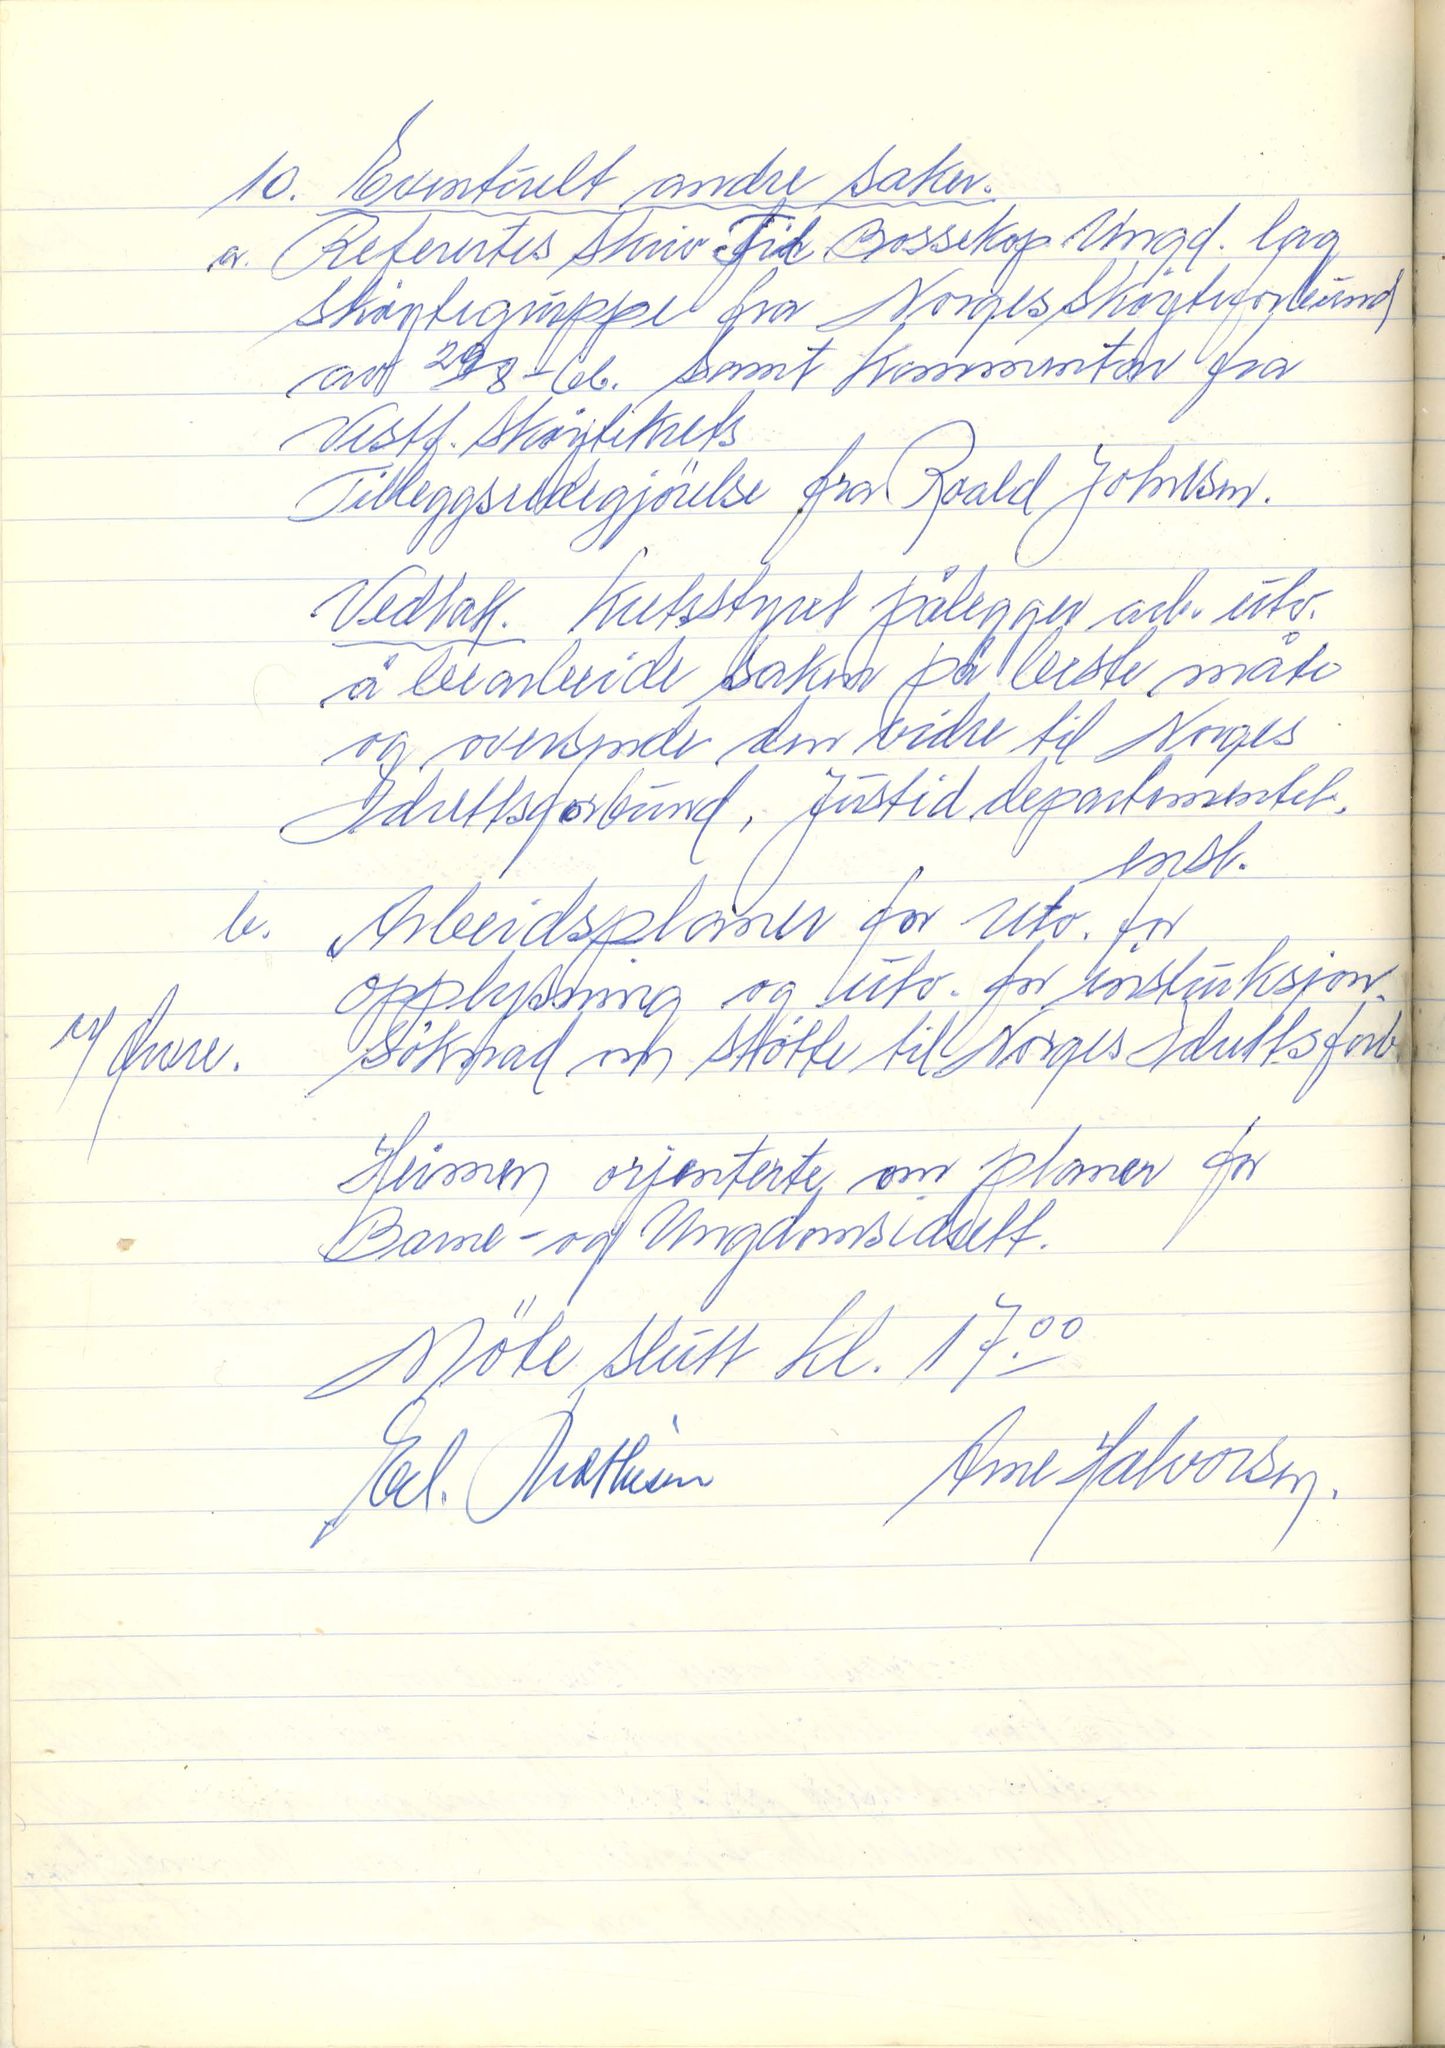 10. Eventuelt andre saker.
a. Refererte skriv til Bossekop Ungd. lag
Skøytegruppe fra Norges Skøyteforbund
av 29/8-66. Samt kommentar fra
Vestf. Skøytekrets
Tilleggsredegjörelse fra Roald Johnsen.
Vedtak. Kretsstyret pålegger arb. utv.
å bearbeide saken på beste måte
og oversende den vidre til Norges
Idrettsforbund, Justid departementet.
enst.
b. Arbeidsplaner for utv. for
opplysning og utv. for instruksjon.
Söknad om støtte til Norges Idrettsforb.
Heimen orjenterte om planer for
Barne- og Ungdomsidrett.
Möte slutt kl. 17.00
Ed. Mathisen Arne Halvorsen.